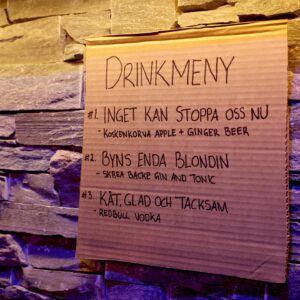 DRINKMENY
#1. INGET KAN STOPPA OSS NU
- KOSKENKORVA APPLE + GINGER BEER
#2. BYNS ENDA BLONDIN
- SKREA BACKE GIN AND TONIC
#3. KÅT, GLAD OCH TACKSAM
- REDBULL VODKA